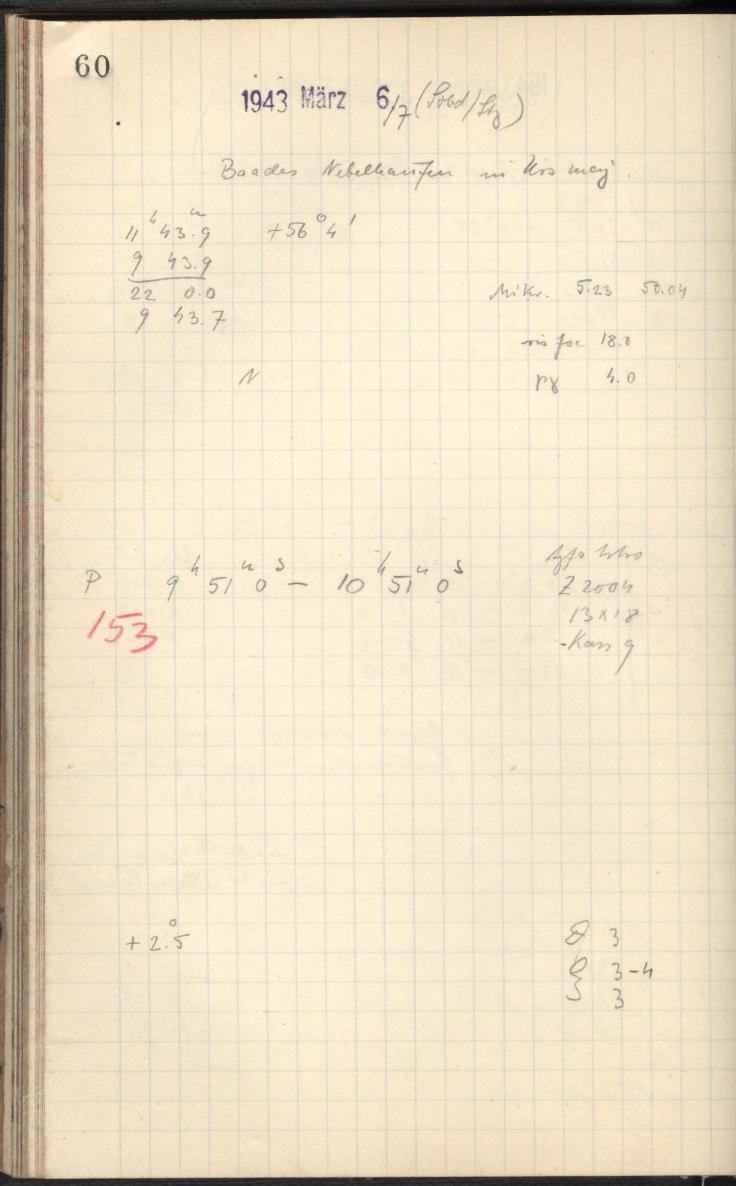 60
1943 März 6/7 (Sobd/Stg)
Baades Nebelhaufen in Urs maj.
11ʰ 43.9ᵐ +56° 4'
9 43.9
22 0.0
9 43.7
Mikr. 5.23 50.04
vis foc 18.0
pg 4.0
N
P 9ʰ 51ᵐ 0ˢ – 10ʰ 51ᵐ 0ˢ
153
Agfa
Z 2004
13×18
Kass 9
+2.°5
3
3-4
3